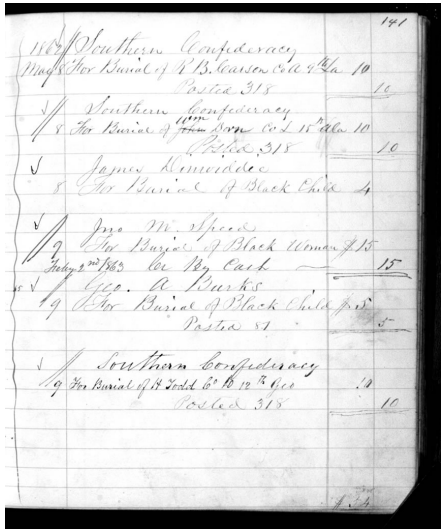 141
1862 Southern Confederacy
May 8 For Burial of R B. Carson Co A 9th La 10
Posted 318 10
Southern Confederacy
8 For Burial of Wm Dorn Co L 15th Ala 10
Posted 318 10
James Dinwiddie
8 For Burial of Black Child 4
Jno M. Speed
9 For Burial of Black Woman $15
Feby 2nd 1863 Cr By Cash 15
Geo. A Burks
9 For Burial of Black Child $5
Posted 81 5
Southern Confederacy
9 For Burial of H Todd Co 12th Geo 10
Posted 318 10